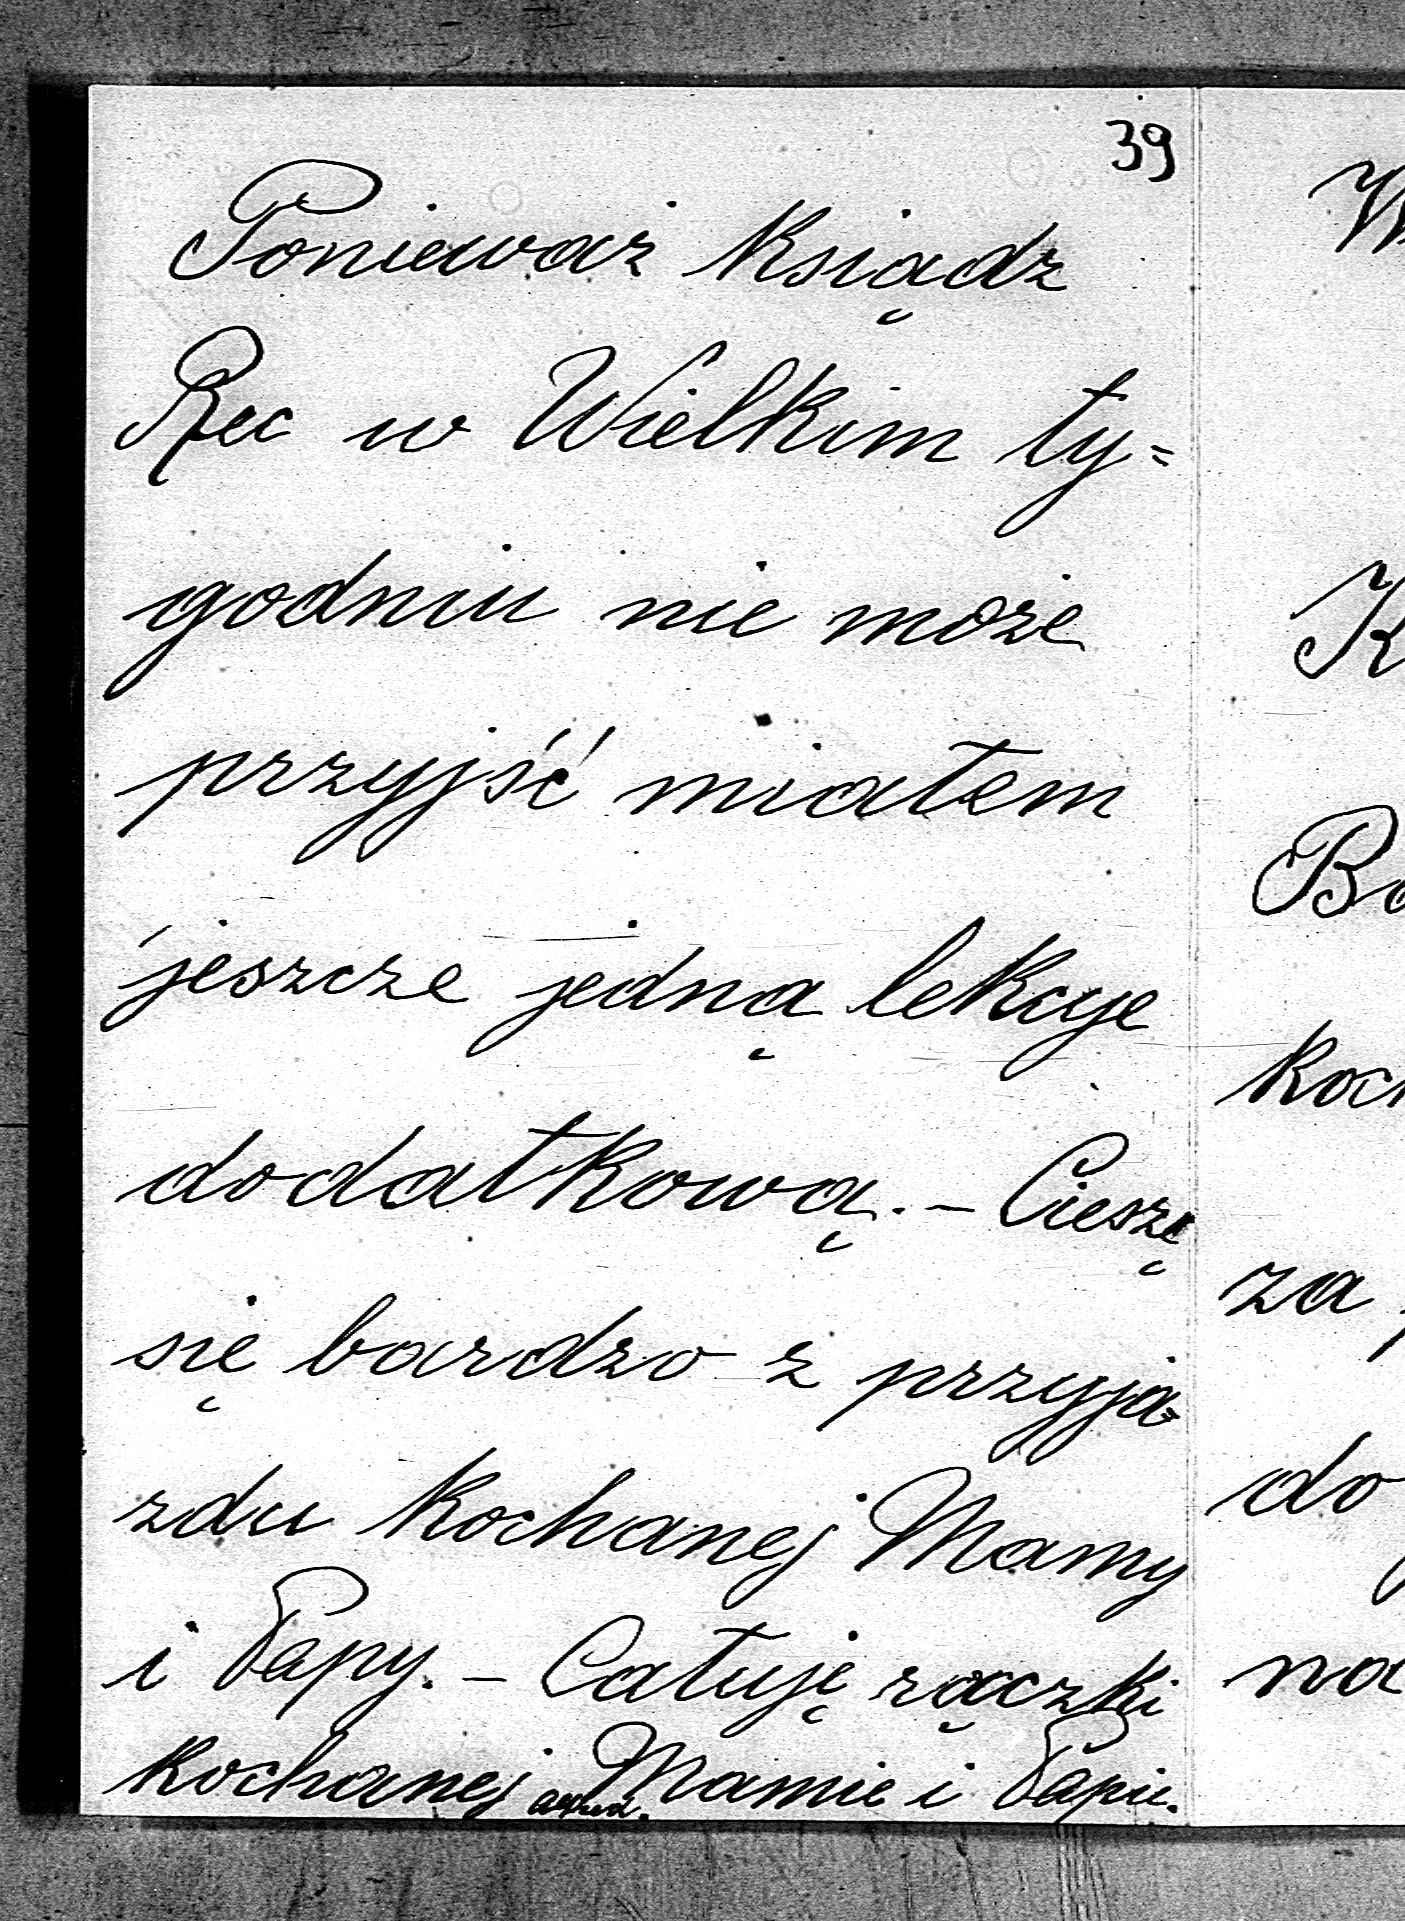 39
Ponieważ ksiądz
Rec w Wielkim ty=
godniu nie może
przyjść miałem
jeszcze jedną lekcye
dodatkową. – Cieszę
się bardzo z przyja=
zdu kochanej Mamy
i Papy. – Całuję rączki
kochanej Mamie i Papie.
W
K
Bo
koch
za
do
na